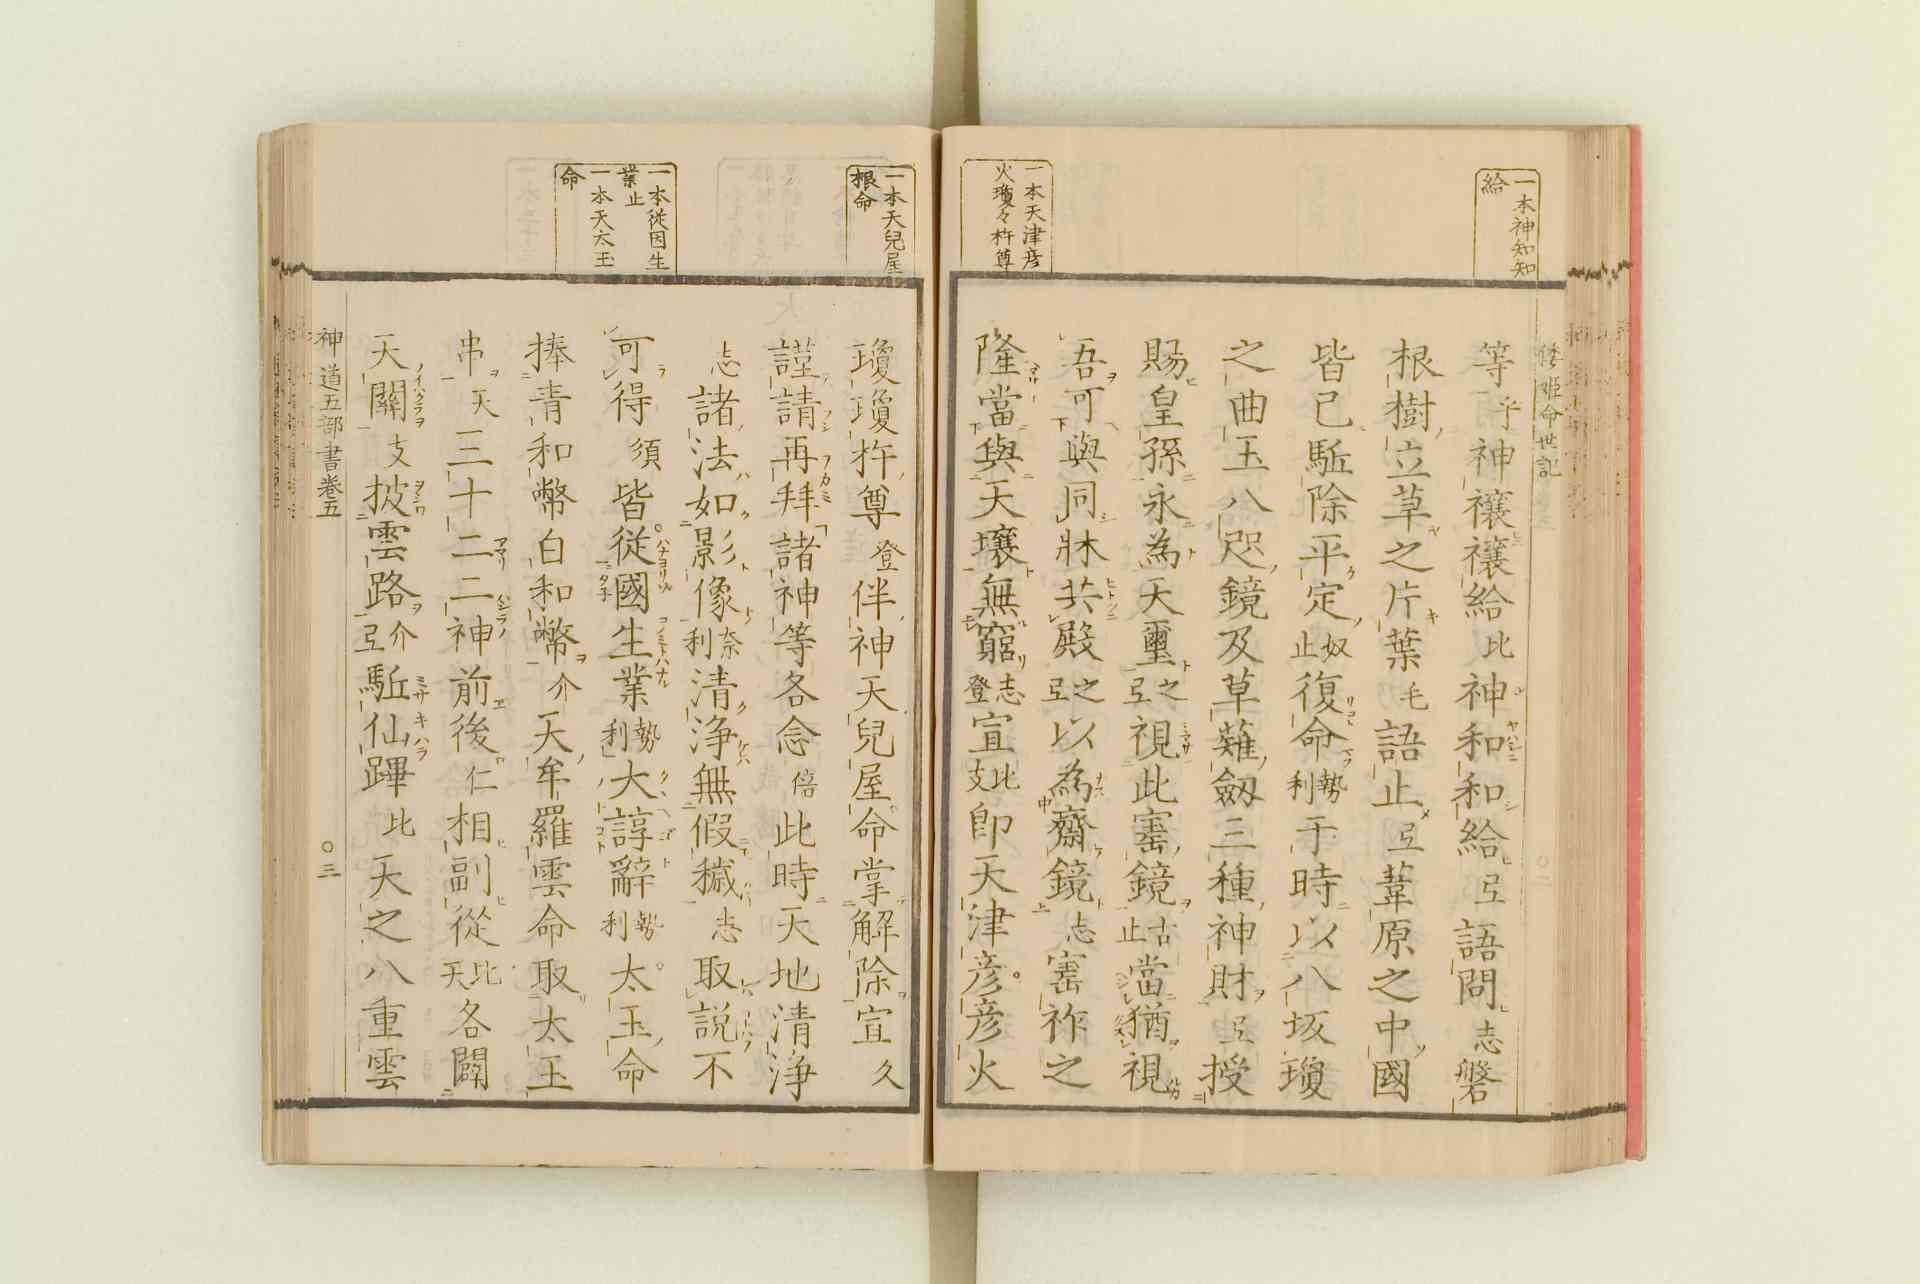 一本神知知
給
一本天津彦
火瓊々杵尊
倭姫命世記
等乎神禳禳給比神和和給比弖語問志磐
根樹立草之片葉毛語止弖葦原之中國
皆已駈除平定奴止復命勢利于時以八坂瓊
之曲玉八咫鏡及草薙劔三種神財弖授
賜皇孫永為天璽之弖視此寳鏡古止當猶視
吾可與同牀共殿之弖以為齋鏡志寳祚之
隆當與天壤無窮志登宣比支即天津彦彦火
一本天兒屋
根命
一本從因生
業止
一本天太玉
命
瓊瓊杵尊登伴神天兒屋命掌解除宣久
謹請再拜諸神等各念倍此時天地清淨
志諸法如影像奈利清淨無假穢志取説不
可得須皆從國生業勢利大諄辭勢利太玉命
捧青和幣白和幣介天牟羅雲命取太玉
串天三十二二神前後仁相副從比天各闢
天關支披雲路介弖駈仙蹕比天之八重雲
神道五部書卷五
○三